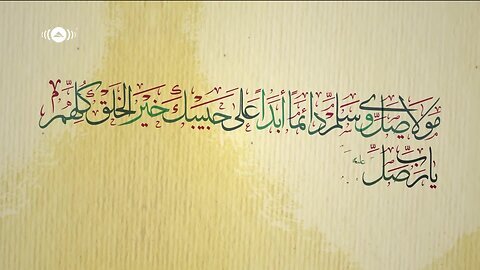 مَوْلَايَ صَلِّ وَسَلِّمْ دَائِمًا أَبَدًا عَلَى حَبِيبِكَ خَيْرِ الْخَلْقِ كُلِّهِمُ
يَا رَبِّ صَلِّ